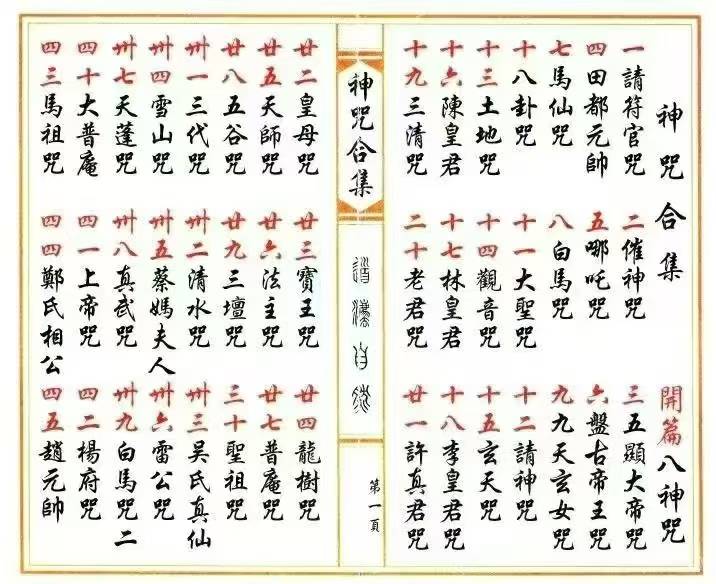 神咒合集 開篇八神咒
一請符官咒 二催神咒 三五顯大帝咒
四田都元帥 五哪吒咒 六盤古帝王咒
七馬仙咒 八白馬咒 九九天玄女咒
十八卦咒 十一大聖咒 十二請神咒
十三土地咒 十四觀音咒 十五玄天咒
十六陳皇君 十七林皇君 十八李皇君咒
十九三清咒 二十老君咒 廿一許真君咒
神咒合集
道灋自然
第一頁
廿二皇母咒 廿三寶王咒 廿四龍樹咒
廿五天師咒 廿六法主咒 廿七普庵咒
廿八五谷咒 廿九三壇咒 三十聖祖咒
卅一三代咒 卅二清水咒 卅三吳氏真仙
卅四雪山咒 卅五蔡媽夫人 卅六雷公咒
卅七天蓬咒 卅八真武咒 卅九白馬咒二
四十大普庵 四一上帝咒 四二楊府咒
四三馬祖咒 四四鄭氏相公 四五趙元帥